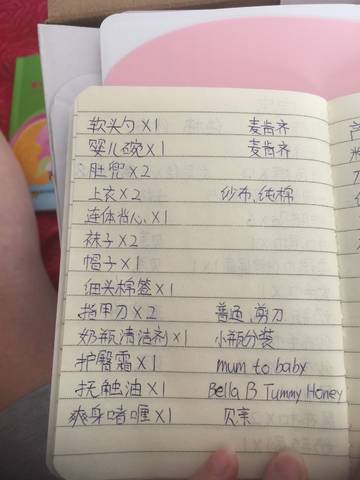 软头勺×1 麦肯齐
婴儿碗×1 麦肯齐
肚兜×2
上衣×2 纱布、纯棉
连体背心×1
袜子×2
帽子×1
细头棉签×1
指甲刀×2 普通、剪刀
奶瓶清洁剂×1 小瓶分装
护臀霜×1 mum to baby
抚触油×1 Bella B Tummy Honey
爽身啫喱×1 贝亲